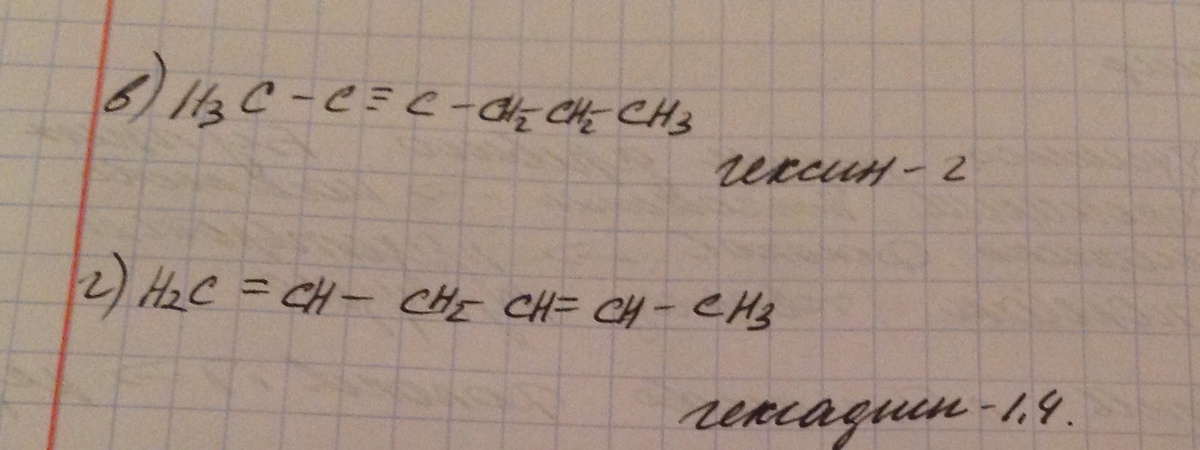 в) H₃C - C ≡ C - CH₂ - CH₂ - CH₃
гексин - 2
г) H₂C = CH - CH₂ - CH = CH - CH₃
гексадиин - 1,4.